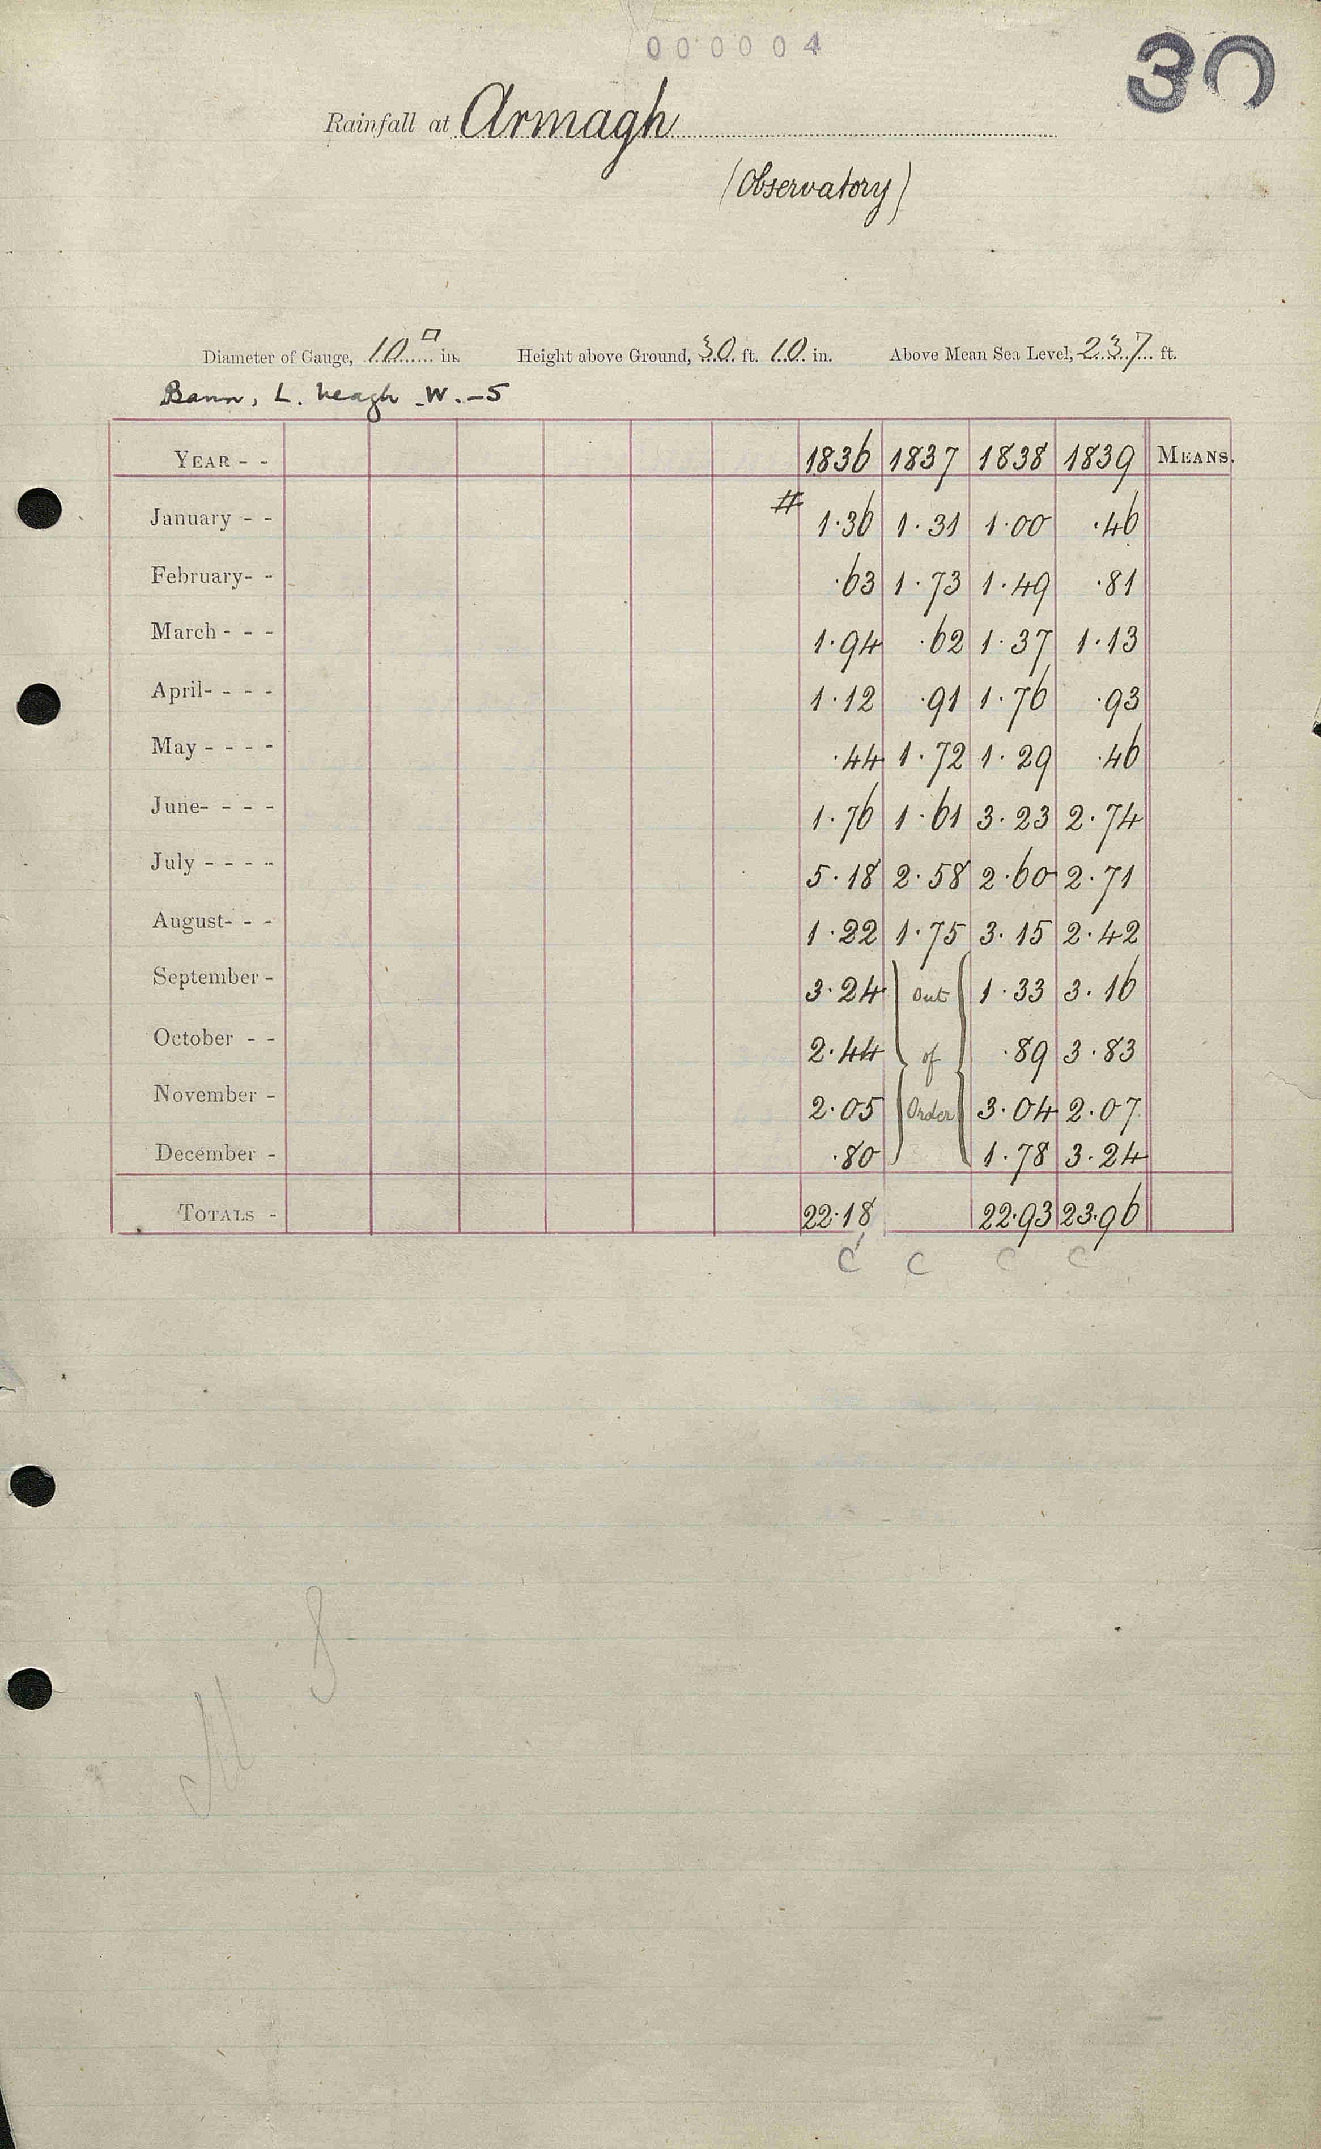 000004
30
Rainfall at Armagh
(Observatory)
Diameter of Gauge, 10 □ in. Height above Ground, 30 ft. 10 in. Above Mean Sea Level, 237 ft.
Bann, L. Neagh W. - 5
YEAR - - 1836 1837 1838 1839 MEANS.
January - - # 1.36 1.31 1.00 .46
February- - .63 1.73 1.49 .81
March - - - 1.94 .62 1.37 1.13
April- - - - 1.12 .91 1.76 .93
May - - - - .44 1.72 1.29 .46
June- - - - 1.76 1.61 3.23 2.74
July - - - - 5.18 2.58 2.60 2.71
August- - - 1.22 1.75 3.15 2.42
September - 3.24 } Out { 1.33 3.16
October - - 2.44 of .89 3.83
November - 2.05 Order 3.04 2.07
December - .80 1.78 3.24
TOTALS - 22.18 22.93 23.96
C C C C
8
M